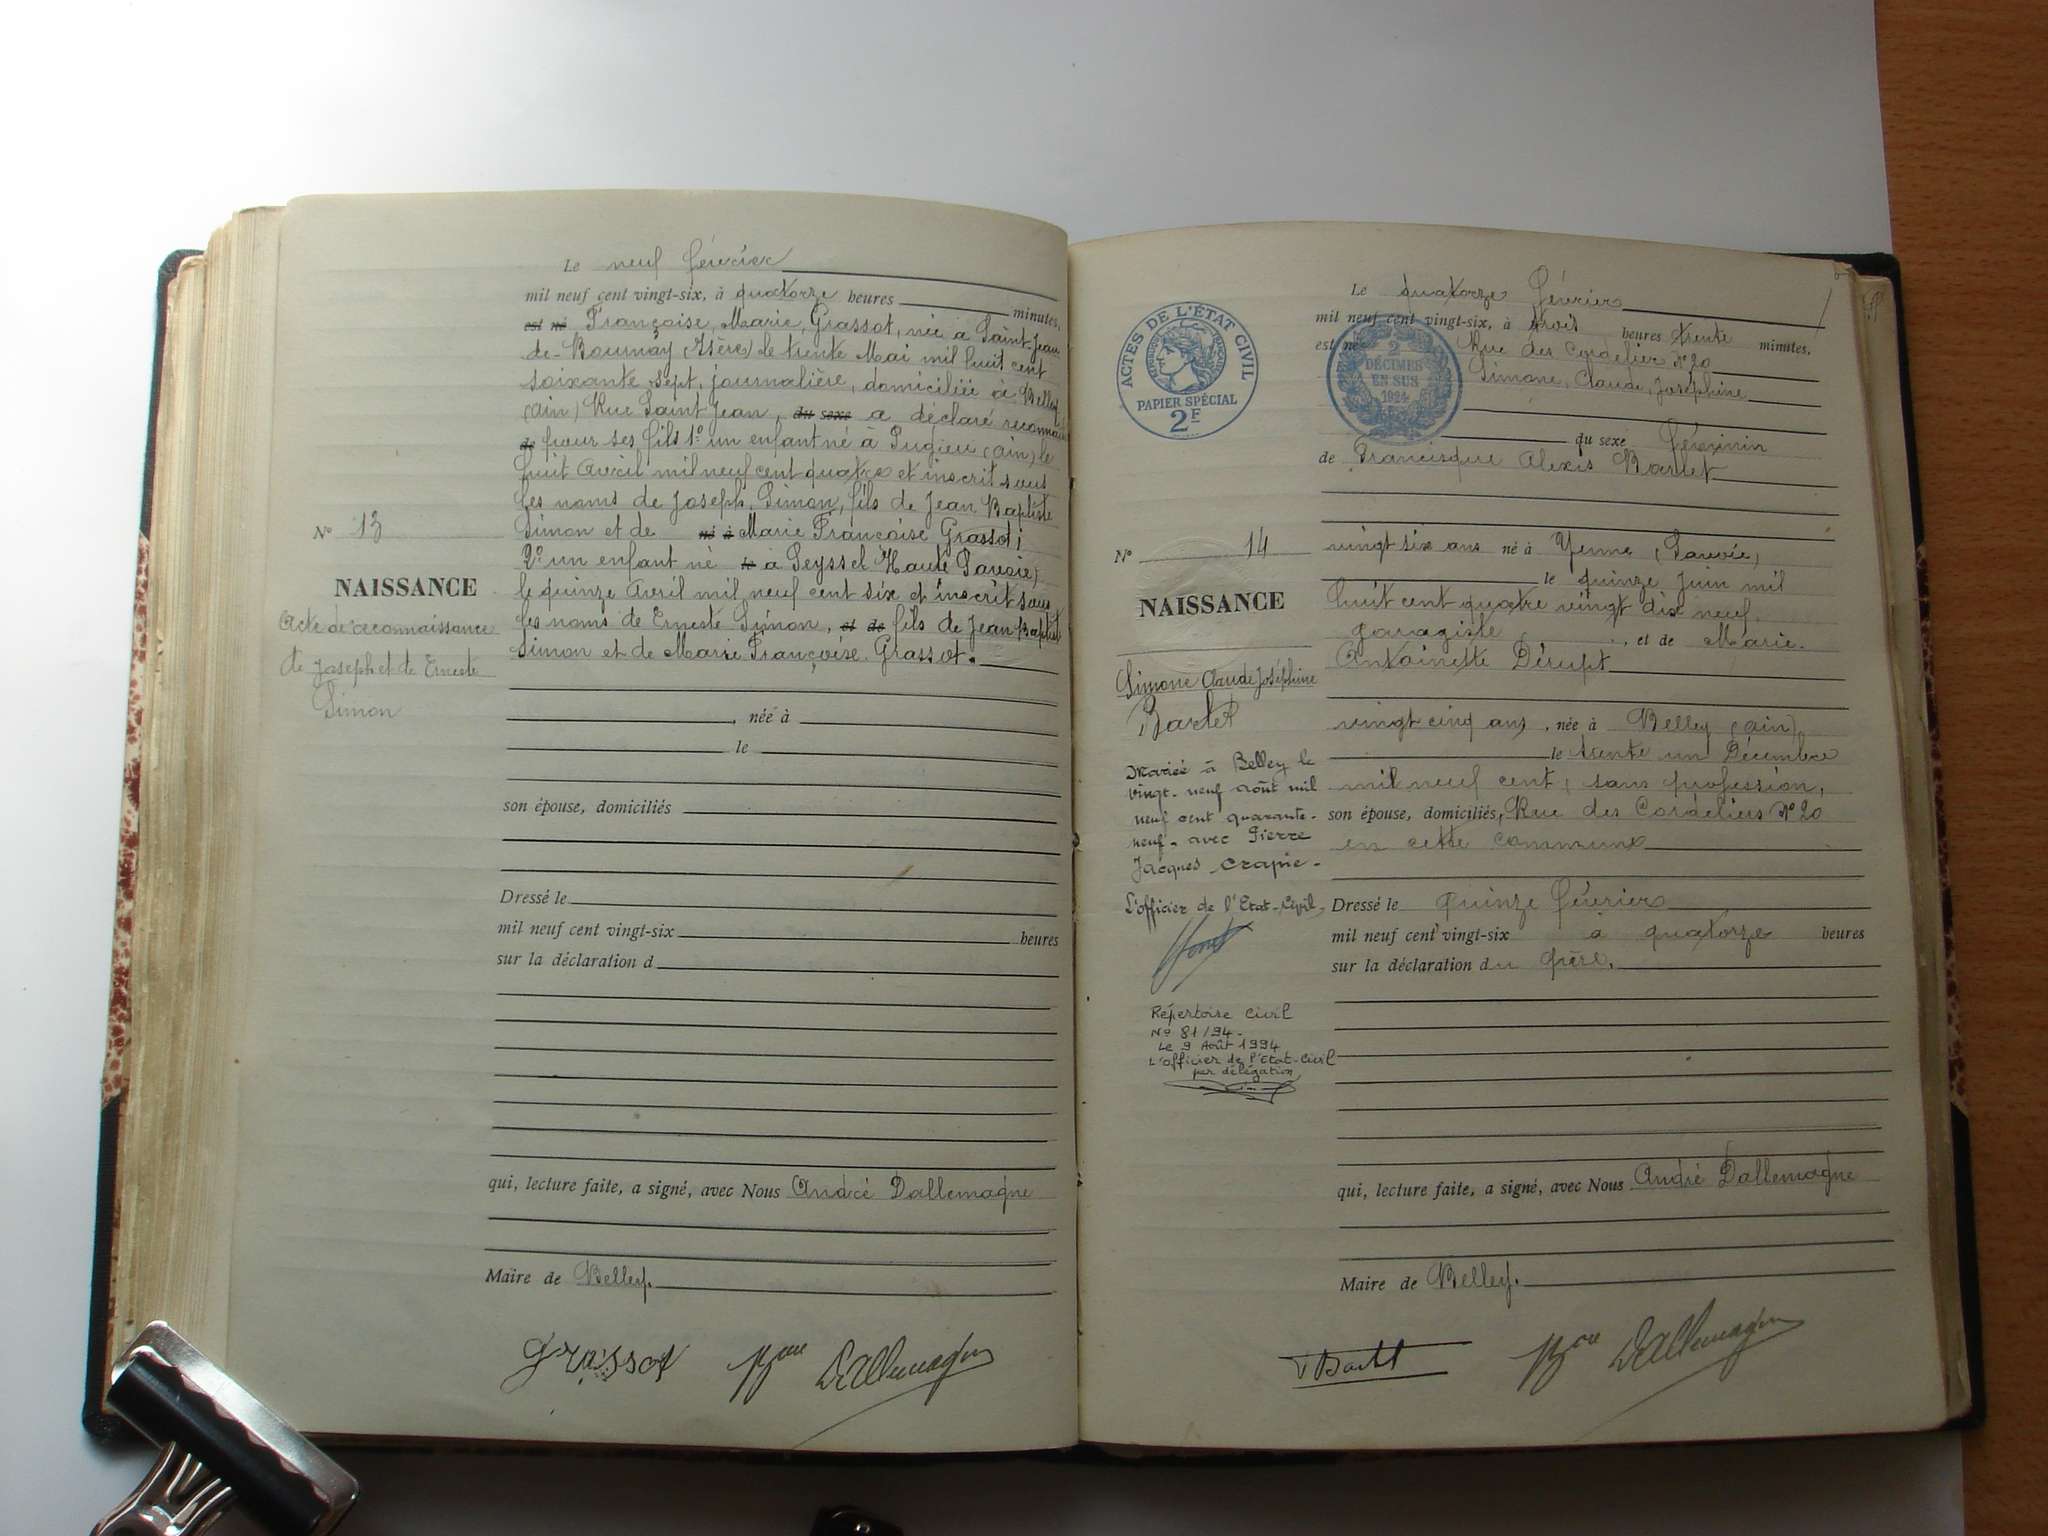 Le neuf février
mil neuf cent vingt-six, à quatorze heures minutes,
est né Françoise, Marie, Grassot, née à Saint-Jean
de-Bournay (Isère) le trente Mai mil huit cent
soixante sept, journalière, domiciliée à Belley
(ain) Rue Saint Jean, du sexe a déclaré reconnaitre
de pour ses fils 1º un enfant né à Pugieu (ain) le
huit Avril mil neuf cent quatre et inscrit sous
les noms de Joseph Simon, fils de Jean Baptiste
Simon et de né à Marie Françoise Grassot;
2º un enfant né le à Seyssel Haute Savoie)
le quinze Avril mil neuf cent six et inscrit sous
les noms de Erneste Simon, et de fils de Jean Baptiste
Simon et de Marie Françoise Grassot.
Nº 13
NAISSANCE
Acte de reconnaissance
de Joseph et de Erneste
Simon
, née à
le
son épouse, domiciliés
Dressé le
mil neuf cent vingt-six heures
sur la déclaration d
qui, lecture faite, a signé, avec Nous André Dallemagne
Maire de Belley.
Grassot Bon Dallemagne
ACTES DE L'ÉTAT CIVIL
PAPIER SPÉCIAL
2F
2
DÉCIMES
EN SUS
1924
Le quatorze Février
mil neuf cent vingt-six, à trois heures trente minutes,
est née Rue des Cordeliers Nº 20
Simone, Claude, Joséphine
du sexe féminin
de Francisque Alexis Bartet
Nº 14
NAISSANCE
Simone Claude Joséphine
Bartet
Mariée à Belley le
vingt-neuf août mil
neuf cent quarante-
neuf - avec Pierre
Jacques Crapie -
L'officier de l'Etat-Civil,
Répertoire Civil
Nº 81/94 -
Le 9 Août 1994
L'officier de l'Etat-Civil
par délégation
vingt six ans né à Yenne (Savoie)
le quinze Juin mil
huit cent quatre vingt dix neuf.
garagiste, et de Marie.
Antoinette Dérupt
vingt cinq ans, née à Belley (ain)
le trente un Décembre
mil neuf cent; sans profession,
son épouse, domiciliés, Rue des Cordeliers Nº 20
en cette commune
Dressé le quinze février
mil neuf cent vingt-six à quatorze heures
sur la déclaration du père.
qui, lecture faite, a signé, avec Nous André Dallemagne
Maire de Belley.
Bartet Bon Dallemagne